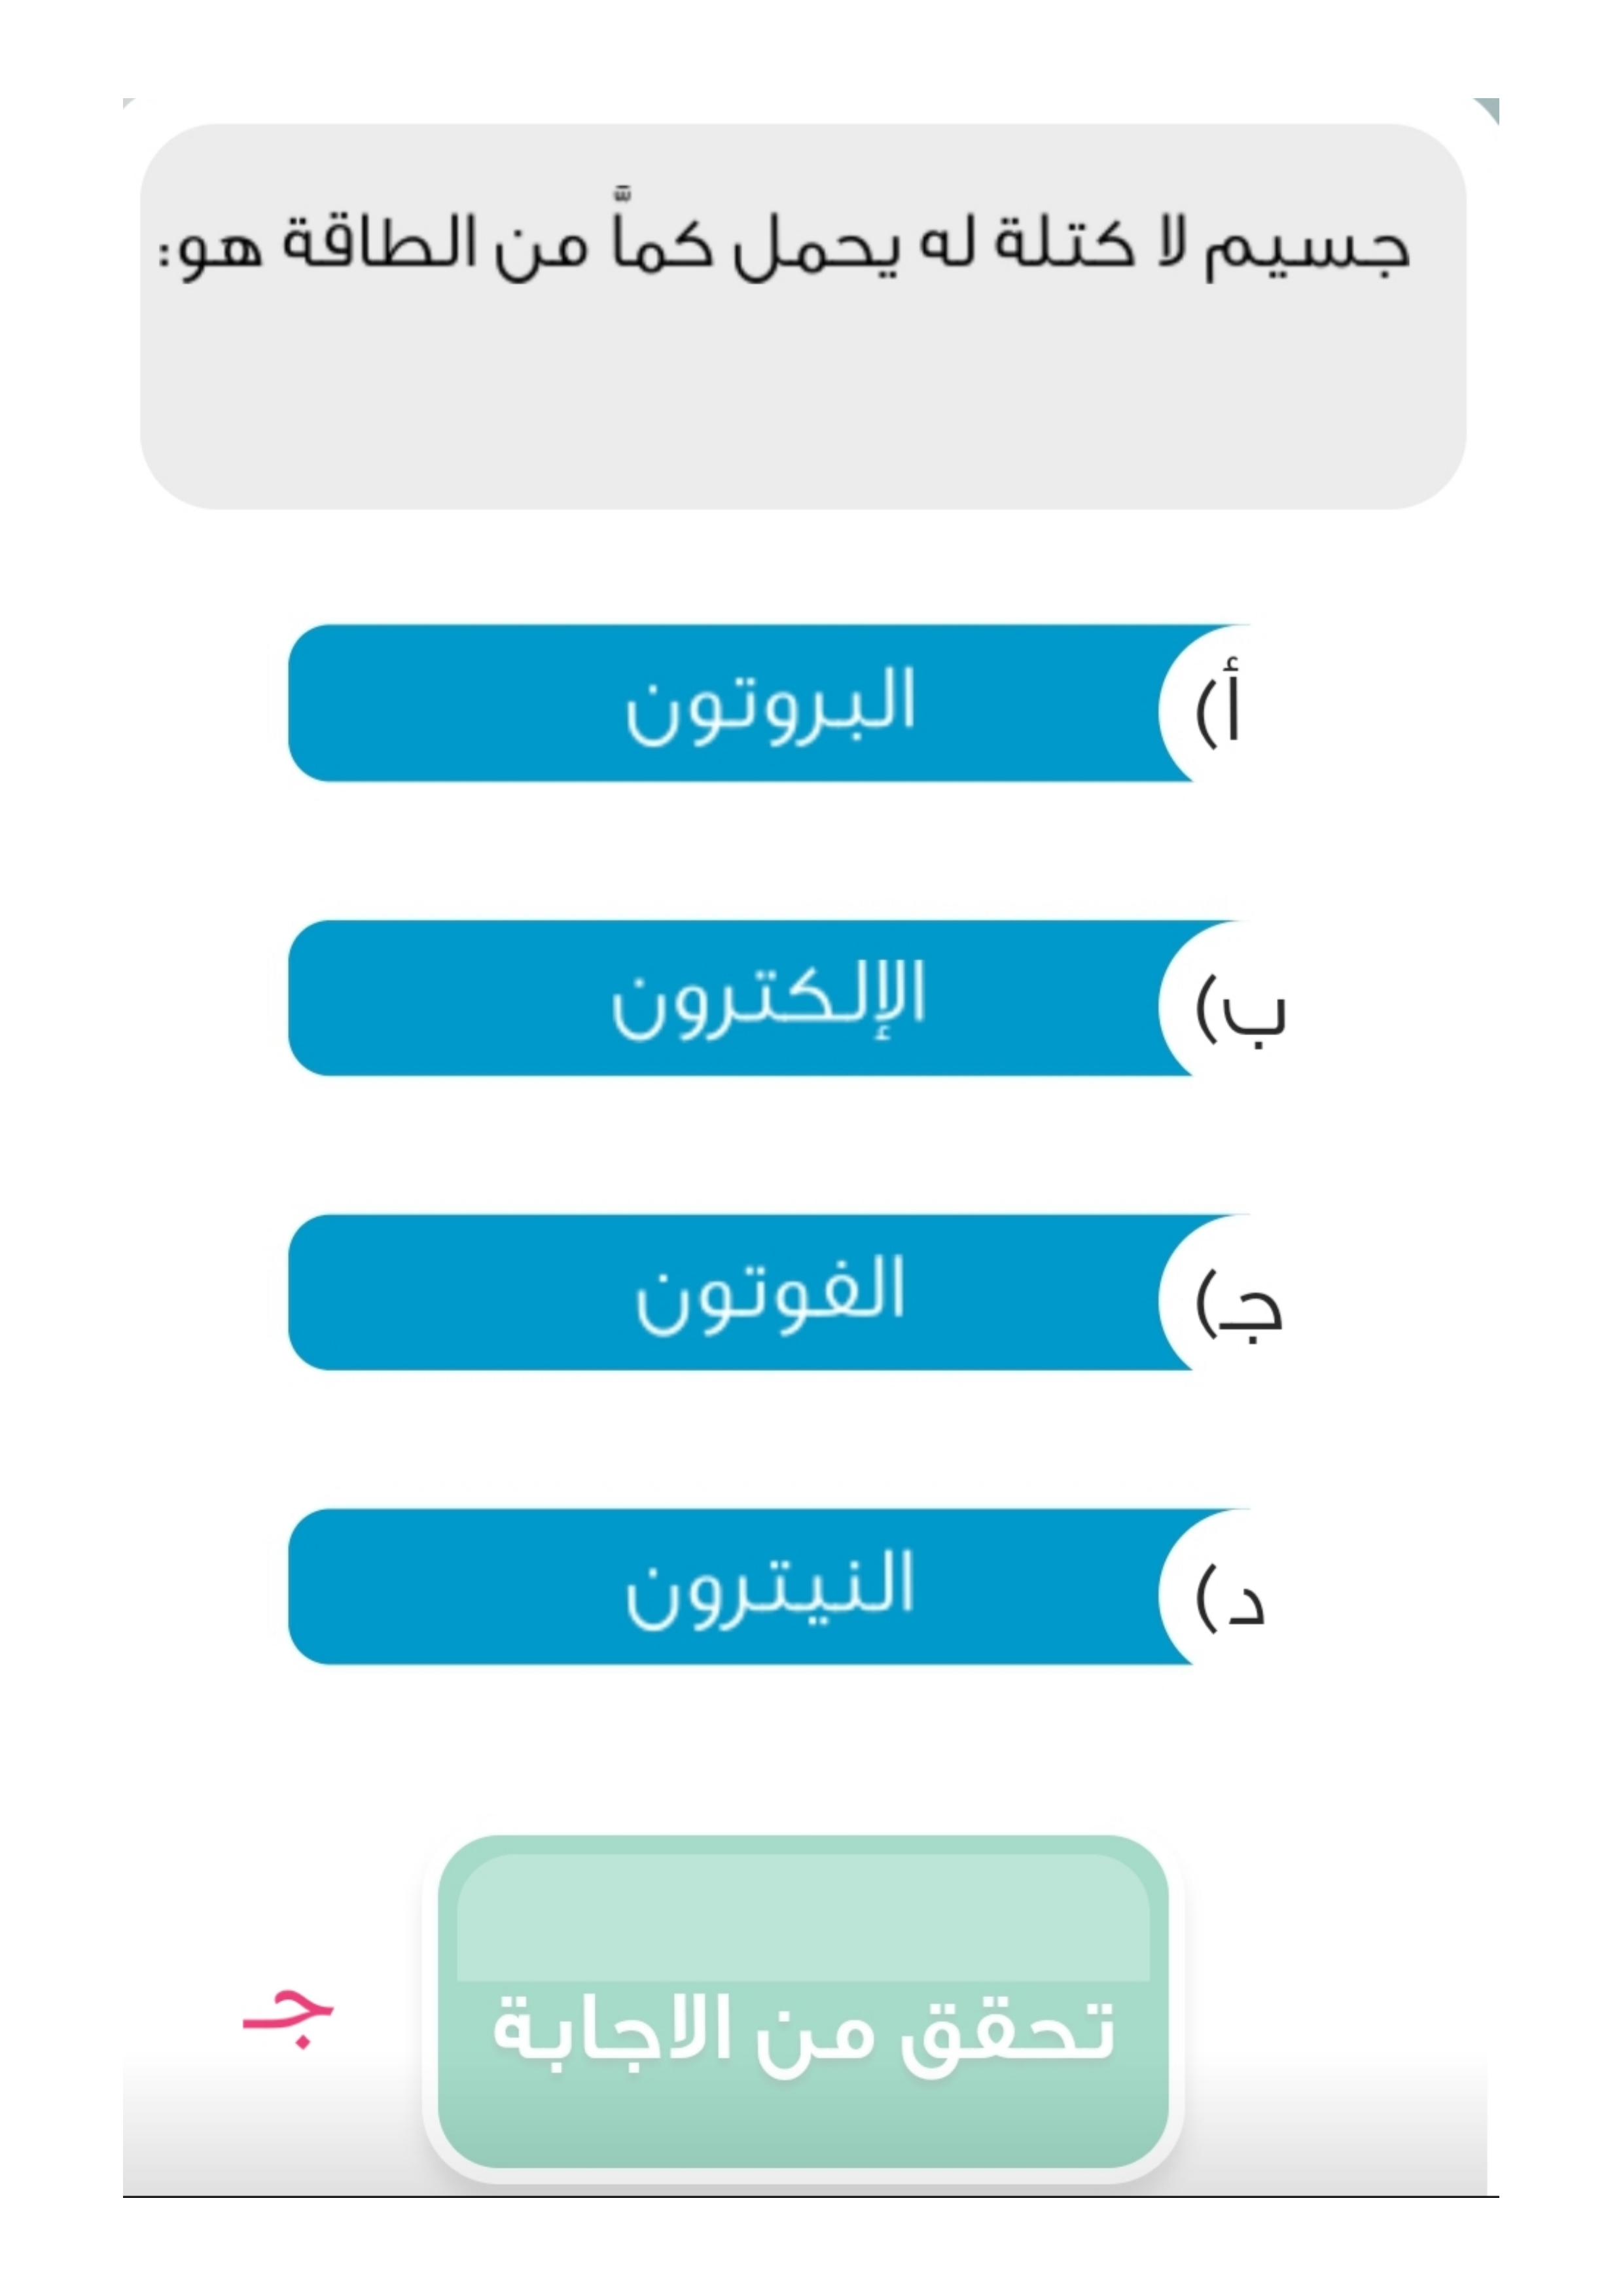 جسيم لا كتلة له يحمل كماًّ من الطاقة هو:
أ) البروتون
ب) الإلكترون
جـ) الفوتون
د) النيترون
تحقق من الاجابة
جـ